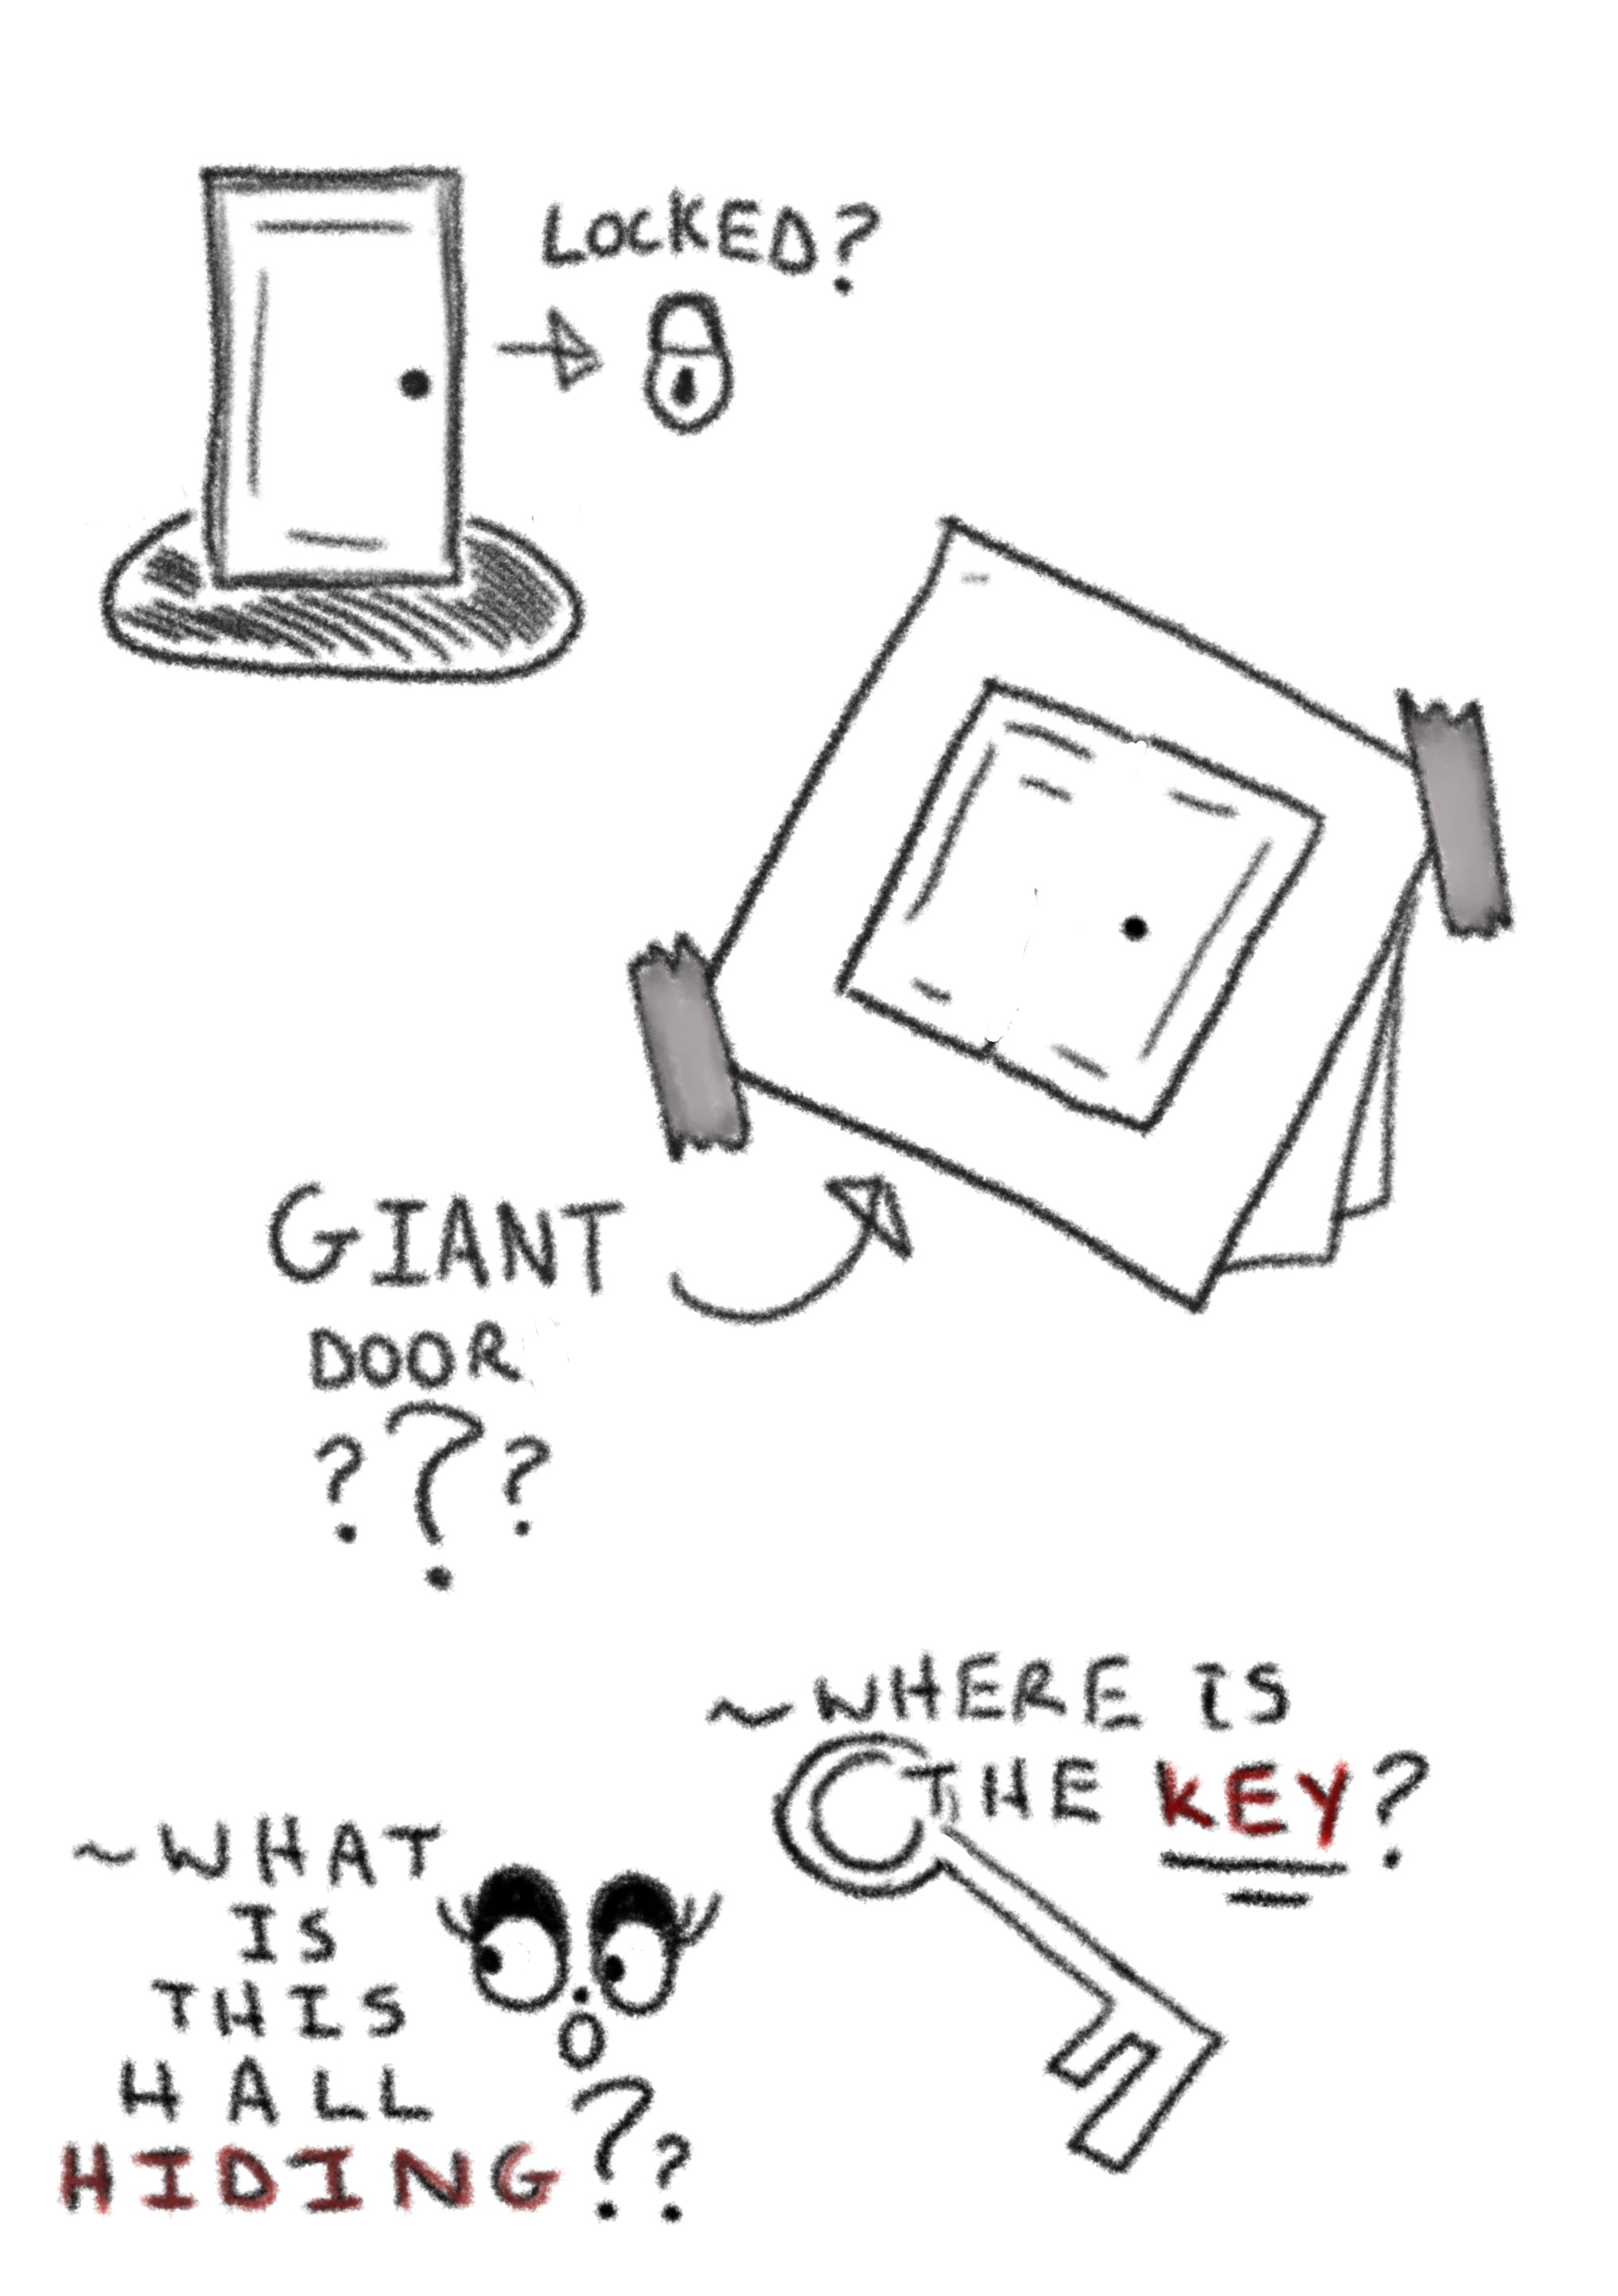 LOCKED?
GIANT
DOOR
???
~WHERE IS
THE KEY?
~WHAT
IS
THIS
HALL
HIDING??